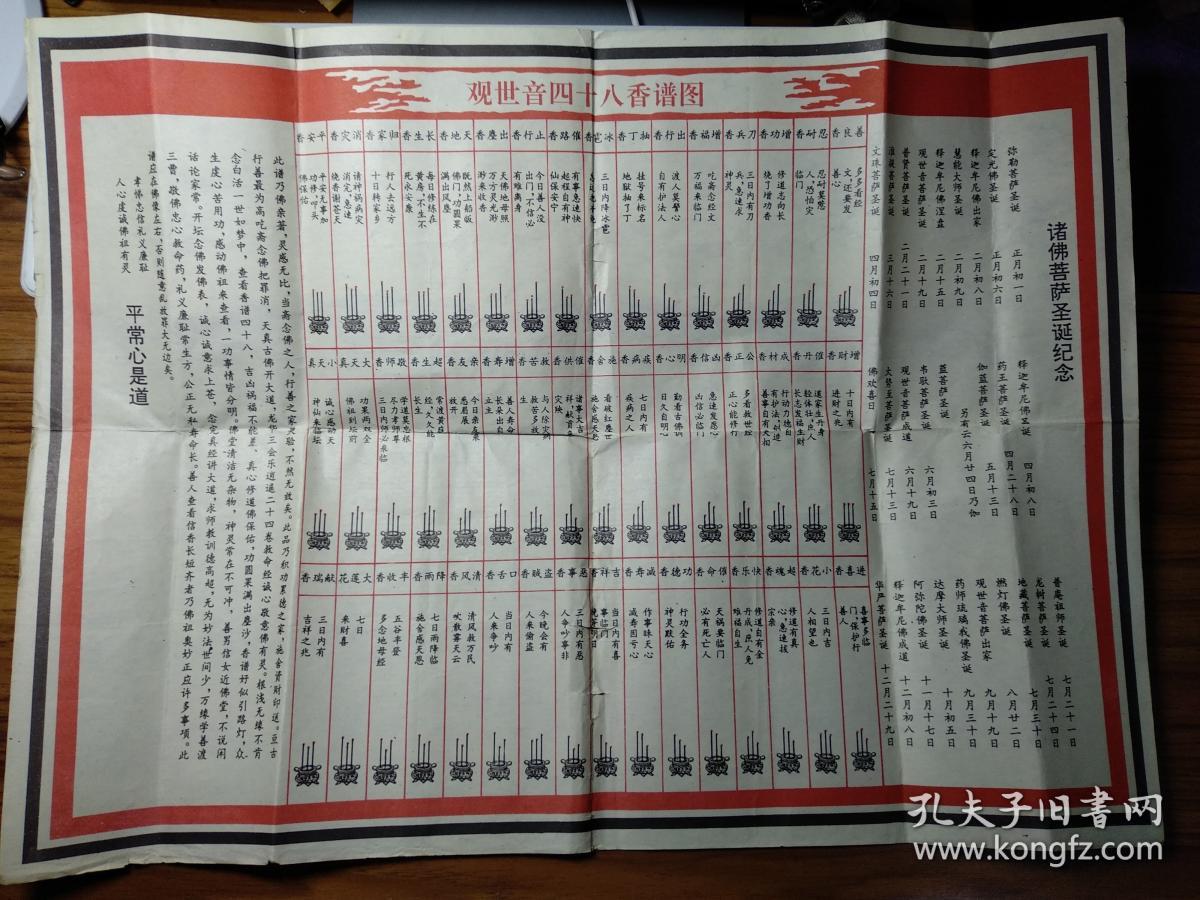 观世音四十八香谱图
诸佛菩萨圣诞纪念
弥勒菩萨圣诞 正月初一日
定光佛圣诞 正月初六日
释迦牟尼佛出家 二月初八日
慧能大师圣诞 二月初九日
释迦牟尼佛涅盘 二月十五日
观世音菩萨圣诞 二月十九日
普贤菩萨圣诞 二月二十一日
准提菩萨圣诞 三月十六日
文殊菩萨圣诞 四月初四日
释迦牟尼佛圣诞 四月初八日
药王菩萨圣诞 四月二十八日
伽蓝菩萨圣诞 五月十三日
另有云六月廿四日乃伽
蓝菩萨圣诞
韦驮菩萨圣诞 六月初三日
观世音菩萨成道 六月十九日
大势至菩萨圣诞 七月十三日
佛欢喜日 七月十五日
普庵祖师圣诞 七月二十一日
龙树菩萨圣诞 七月二十四日
地藏菩萨圣诞 七月三十日
燃灯佛圣诞 八月廿二日
观世音菩萨出家 九月十九日
药师琉璃我佛圣诞 九月三十日
达摩大师圣诞 十月初五
阿弥陀佛圣诞 十一月十七日
释迦牟尼佛成道 十二月初八
华严菩萨圣诞 十二月二十九日
善良香
多多看经
文,还要发
善心
忍耐香
忍耐莫愁
人,恐怕灾
临门
增功香
修道志向长
烧了增功香
刀兵香
三日内有刀
兵,急速求
神灵
增福香
吃斋念经文
万福来临门
出行香
渡人莫警心
自有护法人
抽丁香
挂号来标名
地狱抽了丁
冰雹香
三日内降冰雹
催路香
有事急速快
起程自有神
仙保安宁
止行香
今日善人没
出门,不信必
有难离身
出塵香
天佛地母照
万方灵光渺
渺来收香
天地香
既然上船皈
佛门,功圆果
满出凤塵
长生香
每日修炼在
黄房,不生不
死亲安康
归家香
行人去远方
十日转家乡
消灾香
请神祸病灾
消完,急速
烧香谢苍天
平安香
平安无事加
功修,叩头
佛保佑
增财香
十日内有
进财之兆
催丹香
道家生丹身
轻体壮,凡人
长志发福生财
成材香
行动力德自
有护法,创造
善事自有天相
公正香
多看救世经
正心能修行
凶信香
急速发愿心
凶信必临门
明心香
勤看古佛训
日久自明心
疾病香
七日内有
疾病之人
施舍香
看破红塵世
施舍感天恩
催供香
诸事大吉
救苦香
与人除灾病
救苦多放
生
增寿香
善人寿命
长朵出自
立主
亲友香
今日亲友来
愿者愿
放开
超生香
常渡黄夜
经,久久能
长生
敬师香
学道莫忘根
尽力孝师尊
三日内师必来临
大天真香
功果两双全
佛祖到坛前
小天真香
诚心感动天
神仙来临坛
进喜香
喜事多临
门,保护行
善人
小花香
三日内吉
人相望也
超魂香
修道有真
心,急速拔
宗亲
快乐香
修道自有金
丹成,庶人免
难福自生
催命香
天祸要临门
必有死亡人
功德香
行功全务
神灵默佑
减寿香
作事昧天心
减寿因亏心
吉祥香
当日内有喜
事临门
恶事香
三日内有恶
人争吵事非
盗贼香
今晚会有
人来偷盗
口舌香
当日内有
人来争吵
清风香
清风救万民
吹散雾天云
降雨香
七日雨降临
施舍感天恩
丰收香
五谷丰登
多念地母经
大莲花香
七日
来财喜
献瑞香
三日内有
吉祥之兆
此谱乃佛亲著,灵感无比,当斋念佛之人,行善之家灵验,不然无效矣。此品乃积功累德之家,施舍资财印送。亘古
行善最为高吃斋念佛把罪消,天真古佛开大道,龙华三会乐逍遥二十四卷救命经诚心敬意佛有灵。根浅无缘不肯
念白活一世如梦中,查看香谱四十八,吉凶祸福不能差、真心修道佛保佑,功圆果满出塵沙,香谱好似引路灯,众
生虔心苦用功,感动佛祖来查看,一功事情皆分明。佛堂清洁无杂物,神灵常在不可冲,善男信女近佛堂,不说闲
话论家常。开坛念佛发佛表,诚心诚意求上苍,念完真经讲大道,求师教训德高超,无为妙法世间少,万缘学善渡
三曹,敬佛忠心教命药,礼义廉耻常生方,公正无私寿命长。善人查看信香长短齐者乃佛祖奥妙正应许多事项。此
谱应在佛像左右,否则随意乱放罪大无边矣。
孝悌忠信礼义廉耻
人心虔诚佛祖有灵
平常心是道
孔夫子旧书网
www.kongfz.com